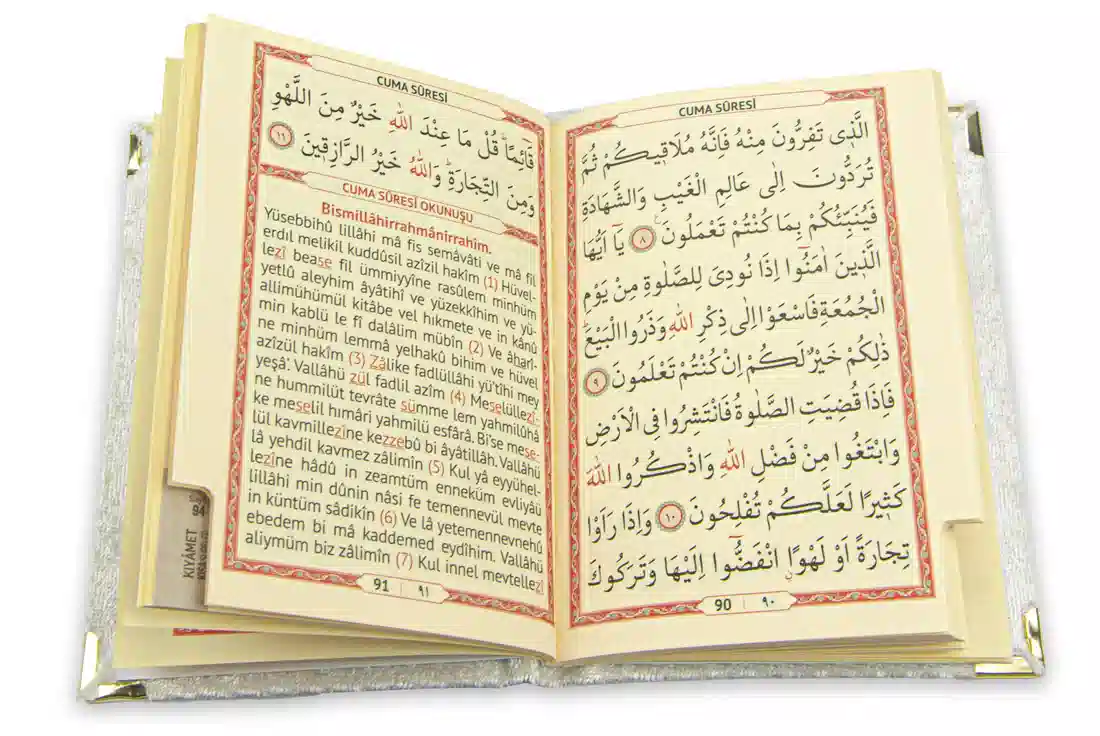 CUMA SÛRESİ
الَّذ۪ي تَفِرُّونَ مِنْهُ فَاِنَّهُ مُلَاق۪يكُمْ ثُمَّ
تُرَدُّونَ اِلٰى عَالِمِ الْغَيْبِ وَالشَّهَادَةِ
فَيُنَبِّئُكُمْ بِمَا كُنْتُمْ تَعْمَلُونَ ٨ يَٓا اَيُّهَا
الَّذ۪ينَ اٰمَنُٓوا اِذَا نُودِيَ لِلصَّلٰوةِ مِنْ يَوْمِ
الْجُمُعَةِ فَاسْعَوْا اِلٰى ذِكْرِ اللّٰهِ وَذَرُوا الْبَيْعَۜ
ذٰلِكُمْ خَيْرٌ لَكُمْ اِنْ كُنْتُمْ تَعْلَمُونَ ٩
فَاِذَا قُضِيَتِ الصَّلٰوةُ فَانْتَشِرُوا فِي الْاَرْضِ
وَابْتَغُوا مِنْ فَضْلِ اللّٰهِ وَاذْكُرُوا اللّٰهَ
كَث۪يرًا لَعَلَّكُمْ تُفْلِحُونَ ١٠ وَاِذَا رَاَوْا
تِجَارَةً اَوْ لَهْوًاۨ انْفَضُّٓوا اِلَيْهَا وَتَرَكُوكَ
90 ٩٠
CUMA SÛRESİ
قَٓائِمًاۜ قُلْ مَا عِنْدَ اللّٰهِ خَيْرٌ مِنَ اللَّهْوِ
وَمِنَ التِّجَارَةِۜ وَاللّٰهُ خَيْرُ الرَّازِق۪ينَ ١١
CUMA SÛRESİ OKUNUŞU
Bismillâhirrahmânirrahim.
Yüsebbihû lillâhi mâ fis semâvâti ve mâ fil
erdıl melikil kuddûsil azîzil hakîm (1) Hüvel-
lezî bease fil ümmiyyîne rasûlem minhüm
yetlû aleyhim âyâtihî ve yüzekkîhim ve yü-
allimühümül kitâbe vel hıkmete ve in kânû
min kablü le fî dalâlim mübîn (2) Ve âharî-
ne minhüm lemmâ yelhakû bihim ve hüvel
azîzül hakîm (3) Zâlike fadlüllâhi yü'tîhi mey
yeşâ'. Vallâhü zül fadlil azîm (4) Meselüllezî-
ne hummilût tevrâte sümme lem yahmilûhâ
ke meselil hımâri yahmilü esfârâ. Bi'se mese-
lül kavmillezîne kezzebû bi âyâtillâh. Vallâhü
lâ yehdil kavmez zâlimîn (5) Kul yâ eyyühel-
lezîne hâdû in zeamtüm enneküm evliyâü
lillâhi min dûnin nâsi fe temennevül mevte
in küntüm sâdikîn (6) Ve lâ yetemennevnehû
ebedem bi mâ kaddemed eydîhim. Vallâhü
aliymüm biz zâlimîn (7) Kul innel mevtellezî
91 ٩١
94
KIYÂMET